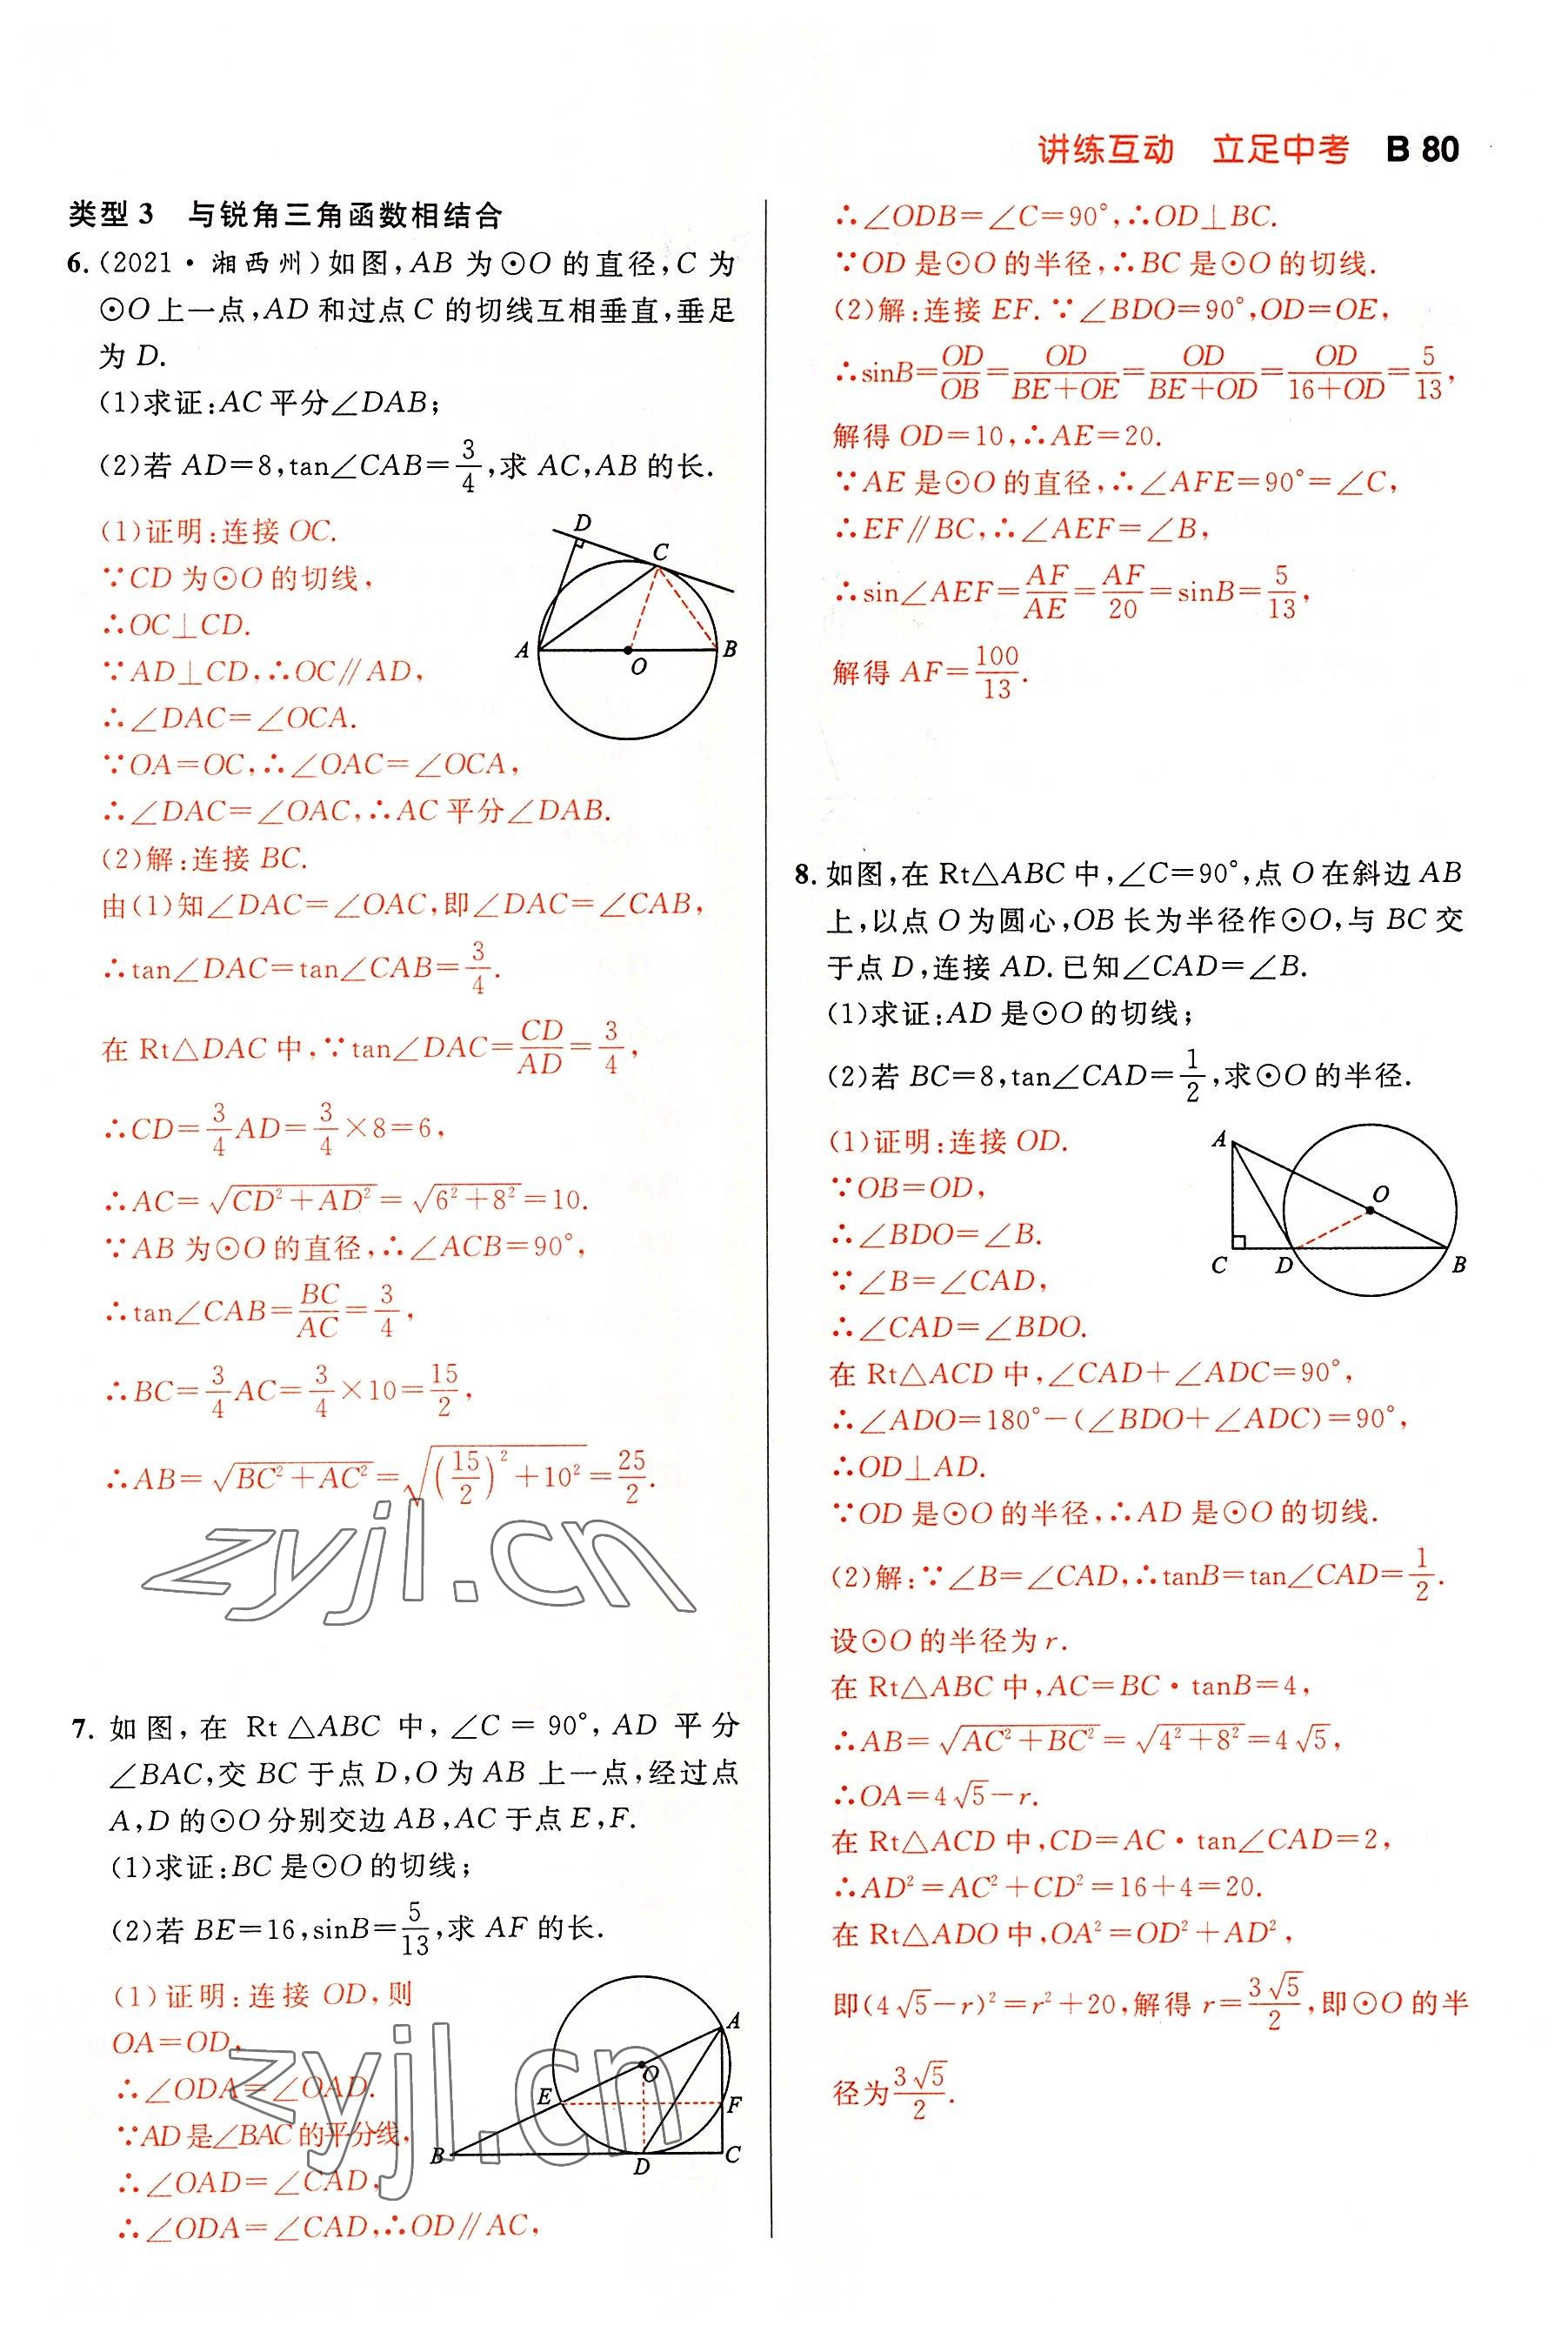 讲练互动 立足中考 B 80
类型 3 与锐角三角函数相结合
6.(2021·湘西州)如图,AB 为⊙O 的直径,C 为
⊙O 上一点,AD 和过点 C 的切线互相垂直,垂足
为 D.
(1)求证:AC 平分∠DAB;
(2)若 AD=8,tan∠CAB=3/4,求 AC,AB 的长.
(1)证明:连接 OC.
∵CD 为⊙O 的切线,
∴OC⊥CD.
∵AD⊥CD,∴OC∥AD,
∴∠DAC=∠OCA.
∵OA=OC,∴∠OAC=∠OCA,
∴∠DAC=∠OAC,∴AC 平分∠DAB.
D
C
A
O
B
(2)解:连接 BC.
由(1)知∠DAC=∠OAC,即∠DAC=∠CAB,
∴tan∠DAC=tan∠CAB=3/4.
在 Rt△DAC 中,∵tan∠DAC=CD/AD=3/4,
∴CD=3/4AD=3/4×8=6,
∴AC=√(CD²+AD²)=√(6²+8²)=10.
∵AB 为⊙O 的直径,∴∠ACB=90°,
∴tan∠CAB=BC/AC=3/4,
∴BC=3/4AC=3/4×10=15/2,
∴AB=√(BC²+AC²)=√((15/2)²+10²)=25/2.
zyjl.cn
7. 如图,在 Rt△ABC 中,∠C=90°,AD 平分
∠BAC,交 BC 于点 D,O 为 AB 上一点,经过点
A,D 的⊙O 分别交边 AB,AC 于点 E,F.
(1)求证:BC 是⊙O 的切线;
(2)若 BE=16,sinB=5/13,求 AF 的长.
(1)证明:连接 OD,则
OA=OD,
∴∠ODA=∠OAD.
∵AD 是∠BAC 的平分线,
∴∠OAD=∠CAD,
∴∠ODA=∠CAD,∴OD∥AC,
A
O
E
F
B
D
C
zyjl.cn
∴∠ODB=∠C=90°,∴OD⊥BC.
∵OD 是⊙O 的半径,∴BC 是⊙O 的切线.
(2)解:连接 EF.∵∠BDO=90°,OD=OE,
∴sinB=OD/OB=OD/(BE+OE)=OD/(BE+OD)=OD/(16+OD)=5/13,
解得 OD=10,∴AE=20.
∵AE 是⊙O 的直径,∴∠AFE=90°=∠C,
∴EF∥BC,∴∠AEF=∠B,
∴sin∠AEF=AF/AE=AF/20=sinB=5/13,
解得 AF=100/13.
8. 如图,在 Rt△ABC 中,∠C=90°,点 O 在斜边 AB
上,以点 O 为圆心,OB 长为半径作⊙O,与 BC 交
于点 D,连接 AD.已知∠CAD=∠B.
(1)求证:AD 是⊙O 的切线;
(2)若 BC=8,tan∠CAD=1/2,求⊙O 的半径.
(1)证明:连接 OD.
∵OB=OD,
∴∠BDO=∠B.
∵∠B=∠CAD,
∴∠CAD=∠BDO.
A
O
C
D
B
在 Rt△ACD 中,∠CAD+∠ADC=90°,
∴∠ADO=180°-(∠BDO+∠ADC)=90°,
∴OD⊥AD.
∵OD 是⊙O 的半径,∴AD 是⊙O 的切线.
(2)解:∵∠B=∠CAD,∴tanB=tan∠CAD=1/2.
设⊙O 的半径为 r.
在 Rt△ABC 中,AC=BC·tanB=4,
∴AB=√(AC²+BC²)=√(4²+8²)=4√5,
∴OA=4√5-r.
在 Rt△ACD 中,CD=AC·tan∠CAD=2,
∴AD²=AC²+CD²=16+4=20.
在 Rt△ADO 中,OA²=OD²+AD²,
即(4√5-r)²=r²+20,解得 r=3√5/2,即⊙O 的半
径为3√5/2.